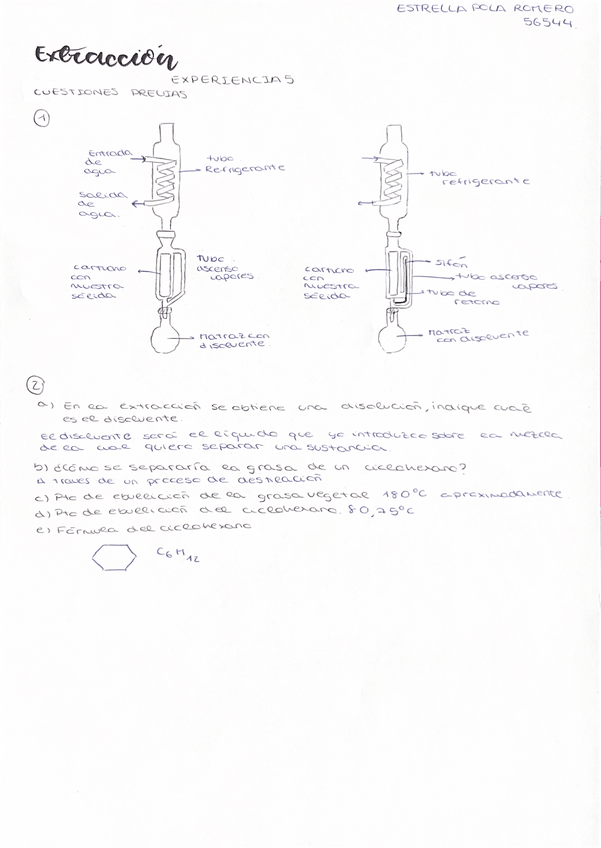 ESTRELLA POLA ROMERO
56544.
Extracción
EXPERIENCIA 5
CUESTIONES PREVIAS
1
Entrada de agua
tubo Refrigerante
salida de agua.
cartucho con muestra sólida
tubo ascenso vapores
Matraz con disolvente
tubo refrigerante
cartucho con muestra sólida
sifón
tubo ascenso vapores
tubo de retorno
matraz con disolvente
2
a) En la extracción se obtiene una disolución, indique cuál
es el disolvente.
El disolvente será el líquido que yo introduzco sobre la mezcla
de la cual quiero separar una sustancia
b) ¿Cómo se separaría la grasa de un ciclohexano?
A través de un proceso de destilación
c) Pto de ebullición de la grasa vegetal 180°C aproximadamente
d) Pto de ebullición del ciclohexano. 80,75°C
e) Fórmula del ciclohexano
C6H12